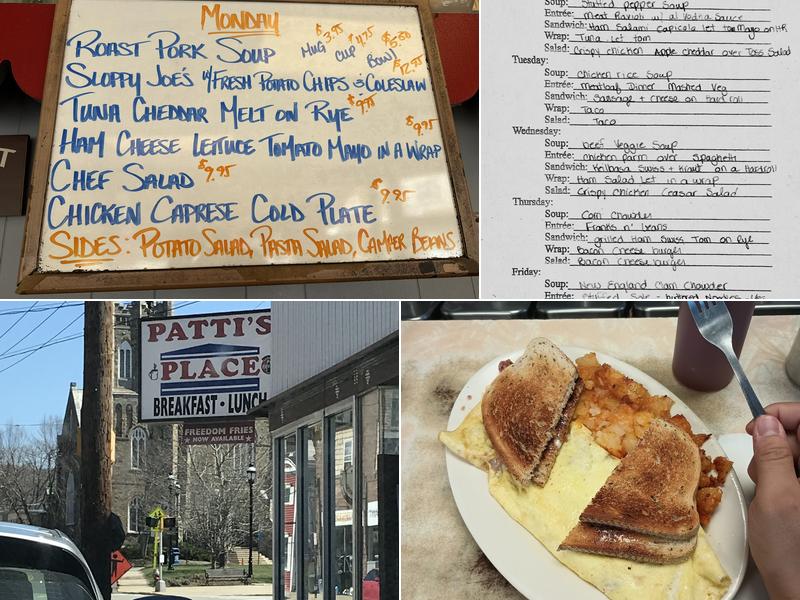 MONDAY
ROAST PORK SOUP MUG $3.95 CUP $4.75 BOWL $5.50
SLOPPY JOE'S W/FRESH POTATO CHIPS & COLESLAW $12.95
TUNA CHEDDAR MELT ON RYE $9.95
HAM CHEESE LETTUCE TOMATO MAYO IN A WRAP $9.95
CHEF SALAD $9.95
CHICKEN CAPRESE COLD PLATE $9.95
SIDES: POTATO SALAD, PASTA SALAD, CAMPER BEANS
T
Soup: Stuffed pepper Soup
Entrée: Meat Ravioli w/ al Vodka Sauce
Sandwich: Ham Salami Capicola let tom Mayo on HR
Wrap: Tuna Let tom
Salad: Crispy chicken Apple cheddar over Toss Salad
Tuesday:
Soup: Chicken rice Soup
Entrée: Meatloaf Dinner Mashed Veg
Sandwich: Sausage + Cheese on hard roll
Wrap: Taco
Salad: Taco
Wednesday:
Soup: beef Veggie Soup
Entrée: Chicken parm over Spaghetti
Sandwich: Kelbasa Swiss + Kraut on a Hardroll
Wrap: Ham Salad Let in a wrap
Salad: Crispy Chicken Ceasar Salad
Thursday:
Soup: Corn Chowder
Entrée: Franks n' beans
Sandwich: grilled Ham Swiss Tom on Rye
Wrap: Bacon Cheese burger
Salad: Bacon Cheese burger
Friday:
Soup: New England Clam Chowder
Entrée: Stuffed Sole - buttered Noodles -
PATTI'S
PLACE
BREAKFAST • LUNCH
FREEDOM FRIES
★ NOW AVAILABLE ★